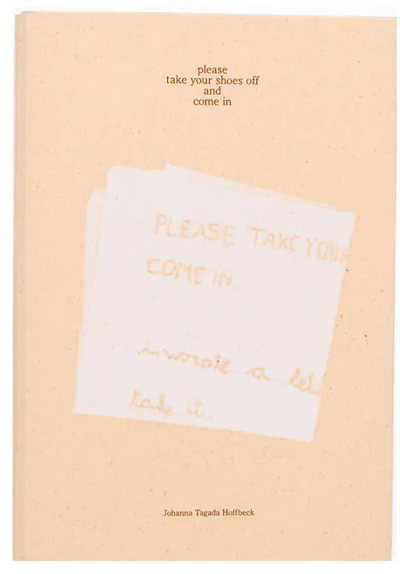 please
take your shoes off
and
come in
PLEASE TAKE YOUR
COME IN
i wrote a let
take it.
Johanna Tagada Hoffbeck